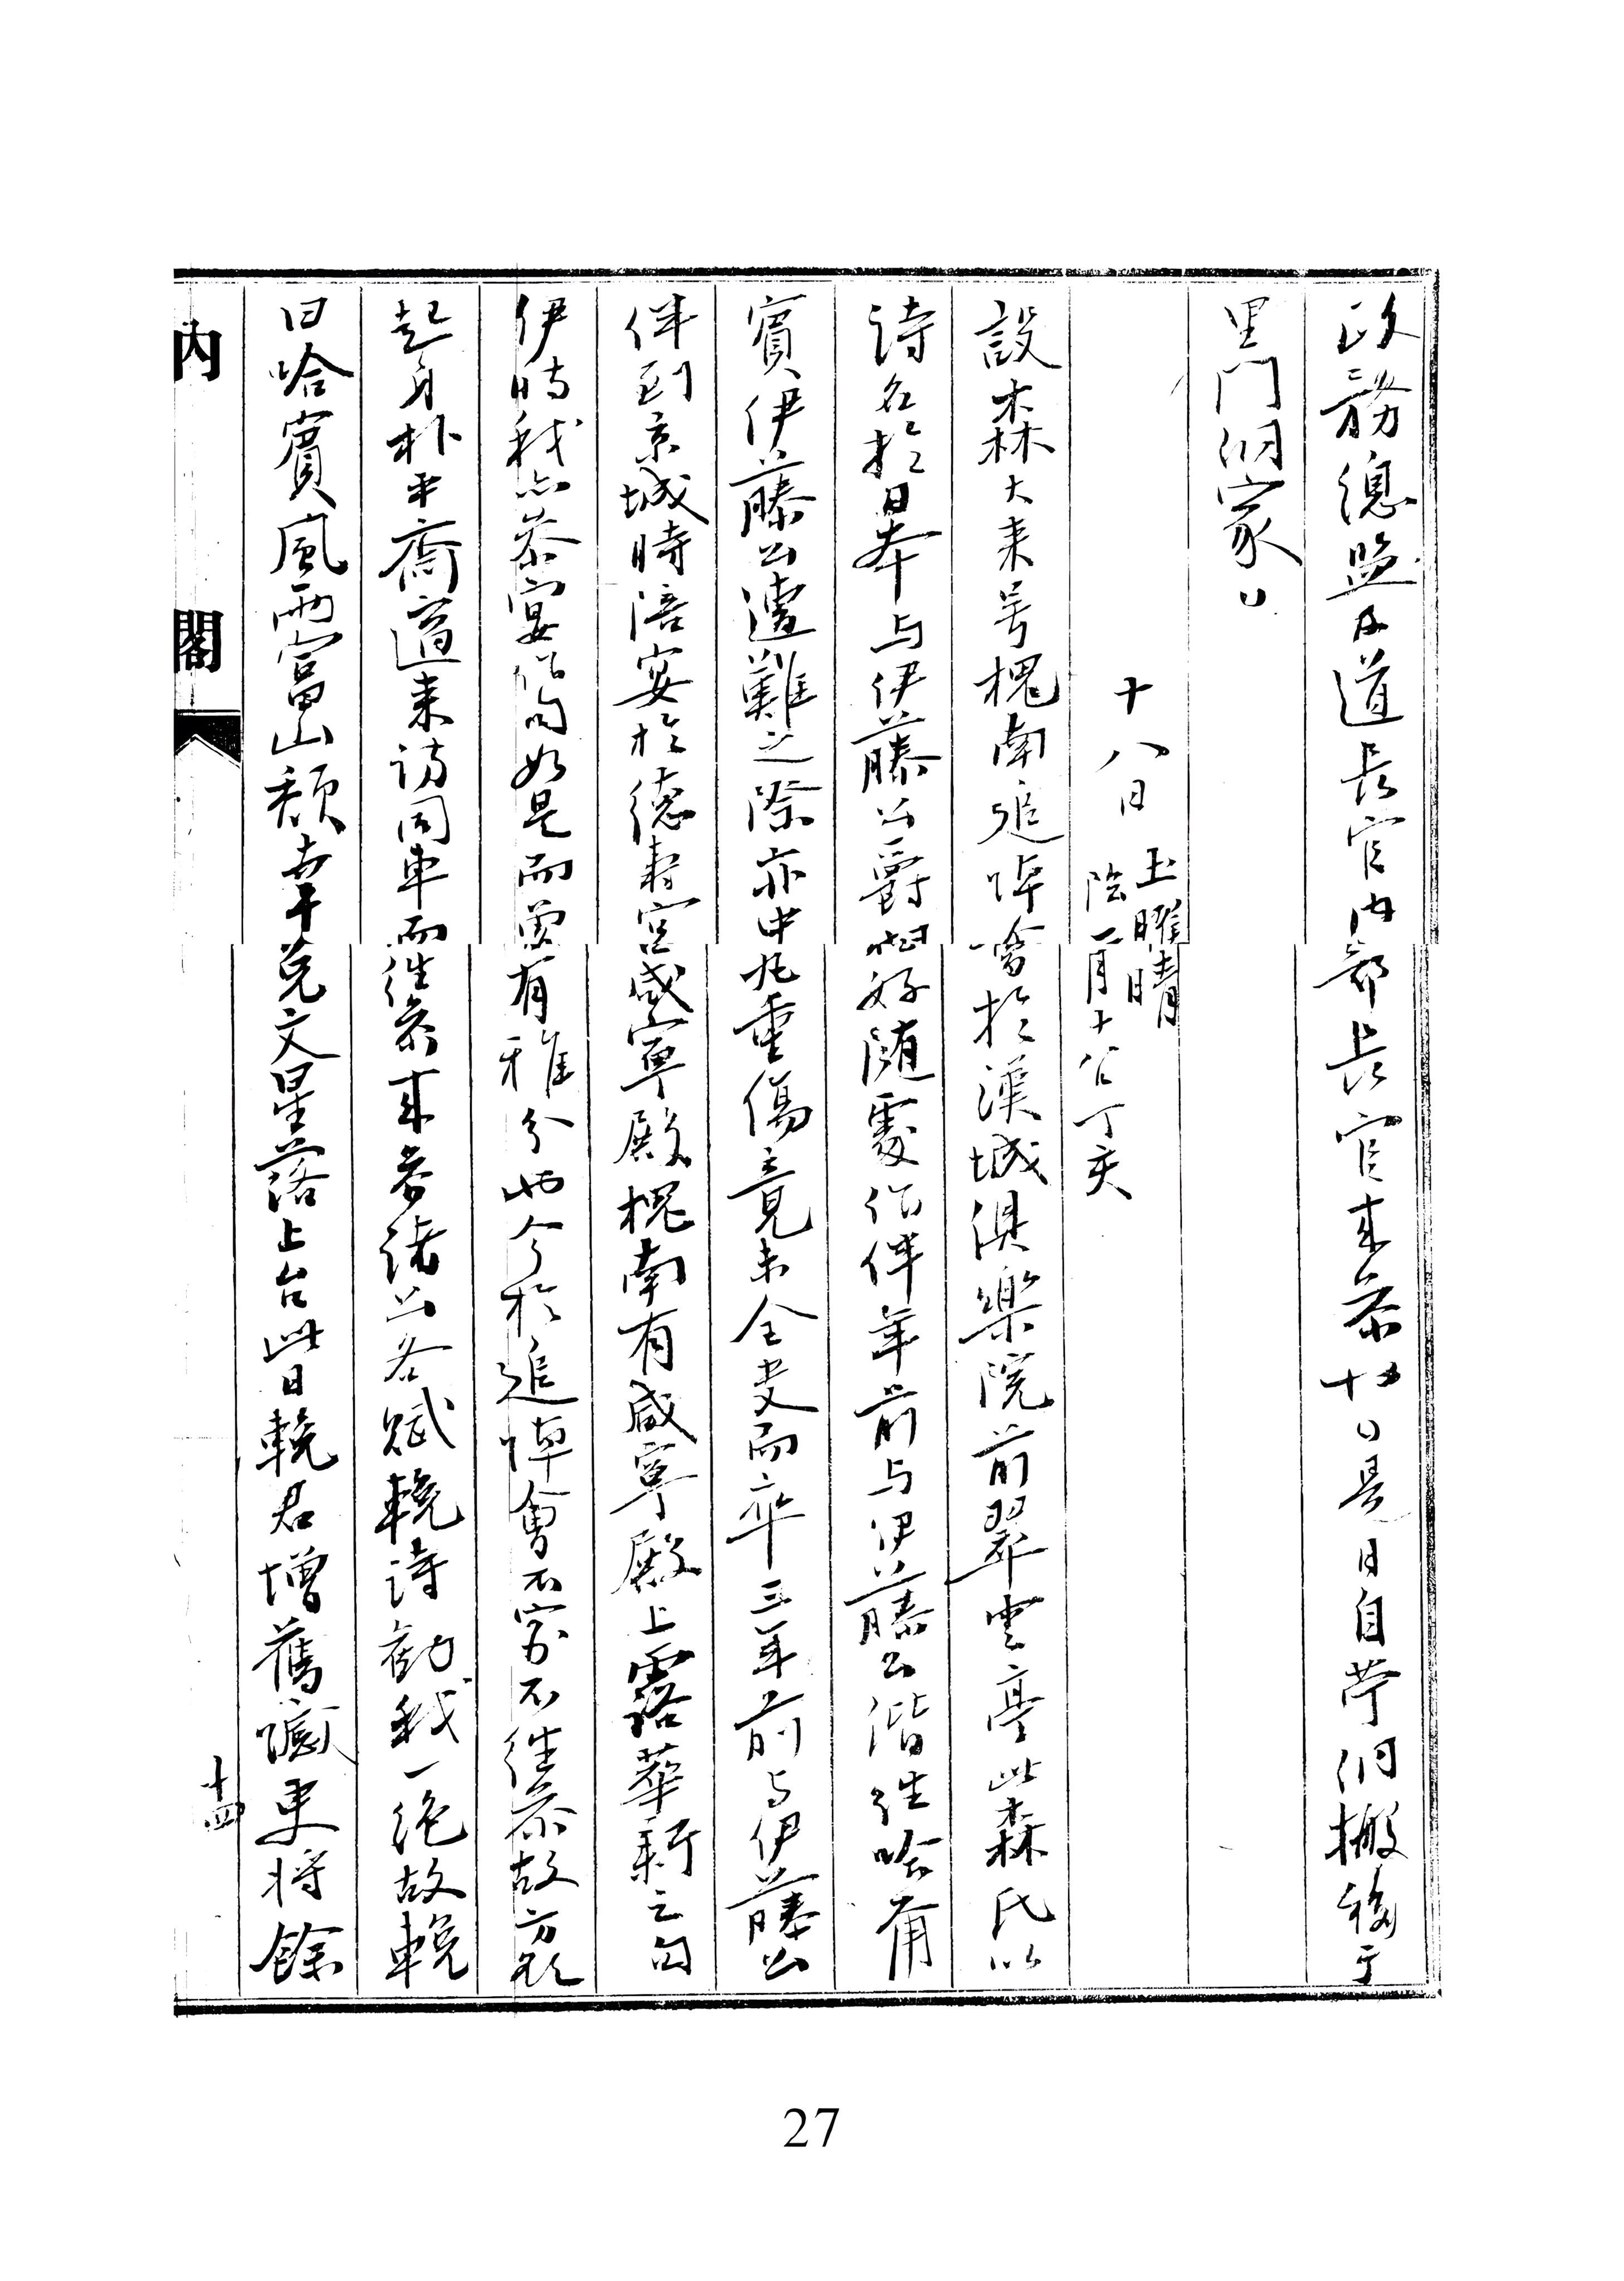 政務總監及道長官內部長官來茶十[illegible]是日自苧洞搬移于
里門洞家
十八日 土曜晴
陰二月十八日丁亥
設森大来号槐南追悼會於漢城俱樂院前翠雲亭此森氏以
詩名於日本与伊藤公爵相好隨處作伴年前与伊藤公偕往哈甫
賓伊藤公遭難之際亦中丸重傷竟未全叟而卒三年前与伊藤公
伴到京城時陪宴於德壽宮咸寧殿槐南有咸寧殿上露華新之句
伊時我亦参宴作句如是而曾有雅分也今於追悼會不害不往茶故方欲
起身朴平齋適來訪同車而往参来参諸公各賦輓詩勸我一絶故輓
曰哈賓風雨富山頹幸免文星落上台此日輓君增舊感更將餘
十四
內閣
27